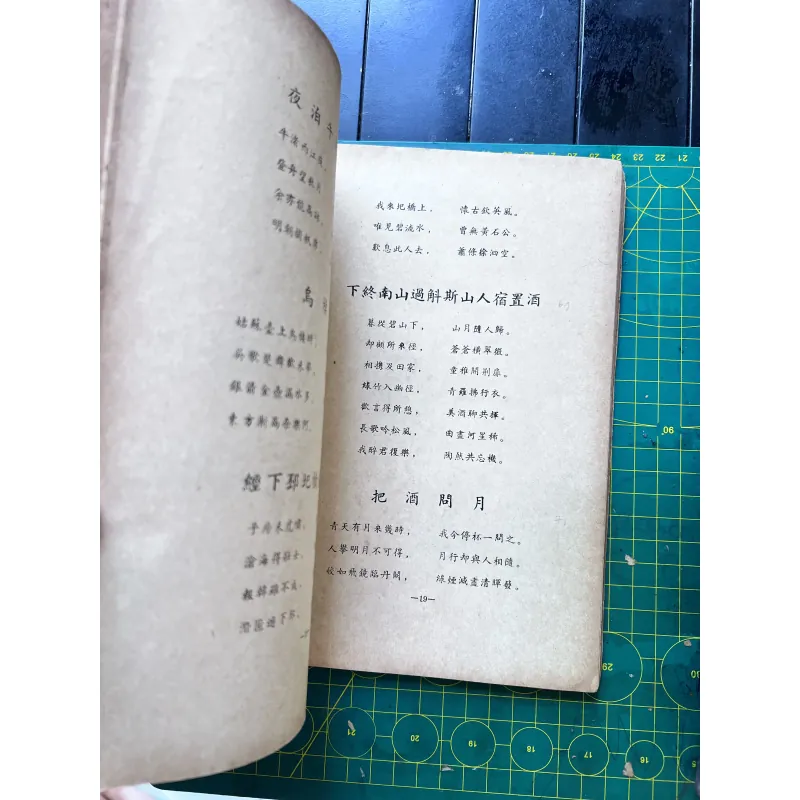 夜泊牛
牛渚西江夜,
登舟望秋月,
余亦能高詠,
明朝掛帆席,
烏
姑蘇臺上烏棲時,
吳歌楚舞歡未畢,
銀箭金壺漏水多,
東方漸高奈樂何
經下邳圯
子房未虎嘯,
滄海得壯士,
報韓雖不成,
潛匿遊下邳,
我來圯橋上, 懷古欽英風。
唯見碧流水, 曾無黃石公。
歎息此人去, 蕭條徐泗空。
下終南山過斛斯山人宿置酒
暮從碧山下, 山月隨人歸。
却顧所來徑, 蒼蒼橫翠微。
相攜及田家, 童稚開荊扉。
綠竹入幽徑, 青蘿拂行衣。
歡言得所憩, 美酒聊共揮。
長歌吟松風, 曲盡河星稀。
我醉君復樂, 陶然共忘機。
把酒問月
青天有月來幾時, 我今停杯一問之。
人攀明月不可得, 月行却與人相隨。
皎如飛鏡臨丹闕, 綠煙滅盡清輝發。
—19—
90
29
21
20
19
18
17
16